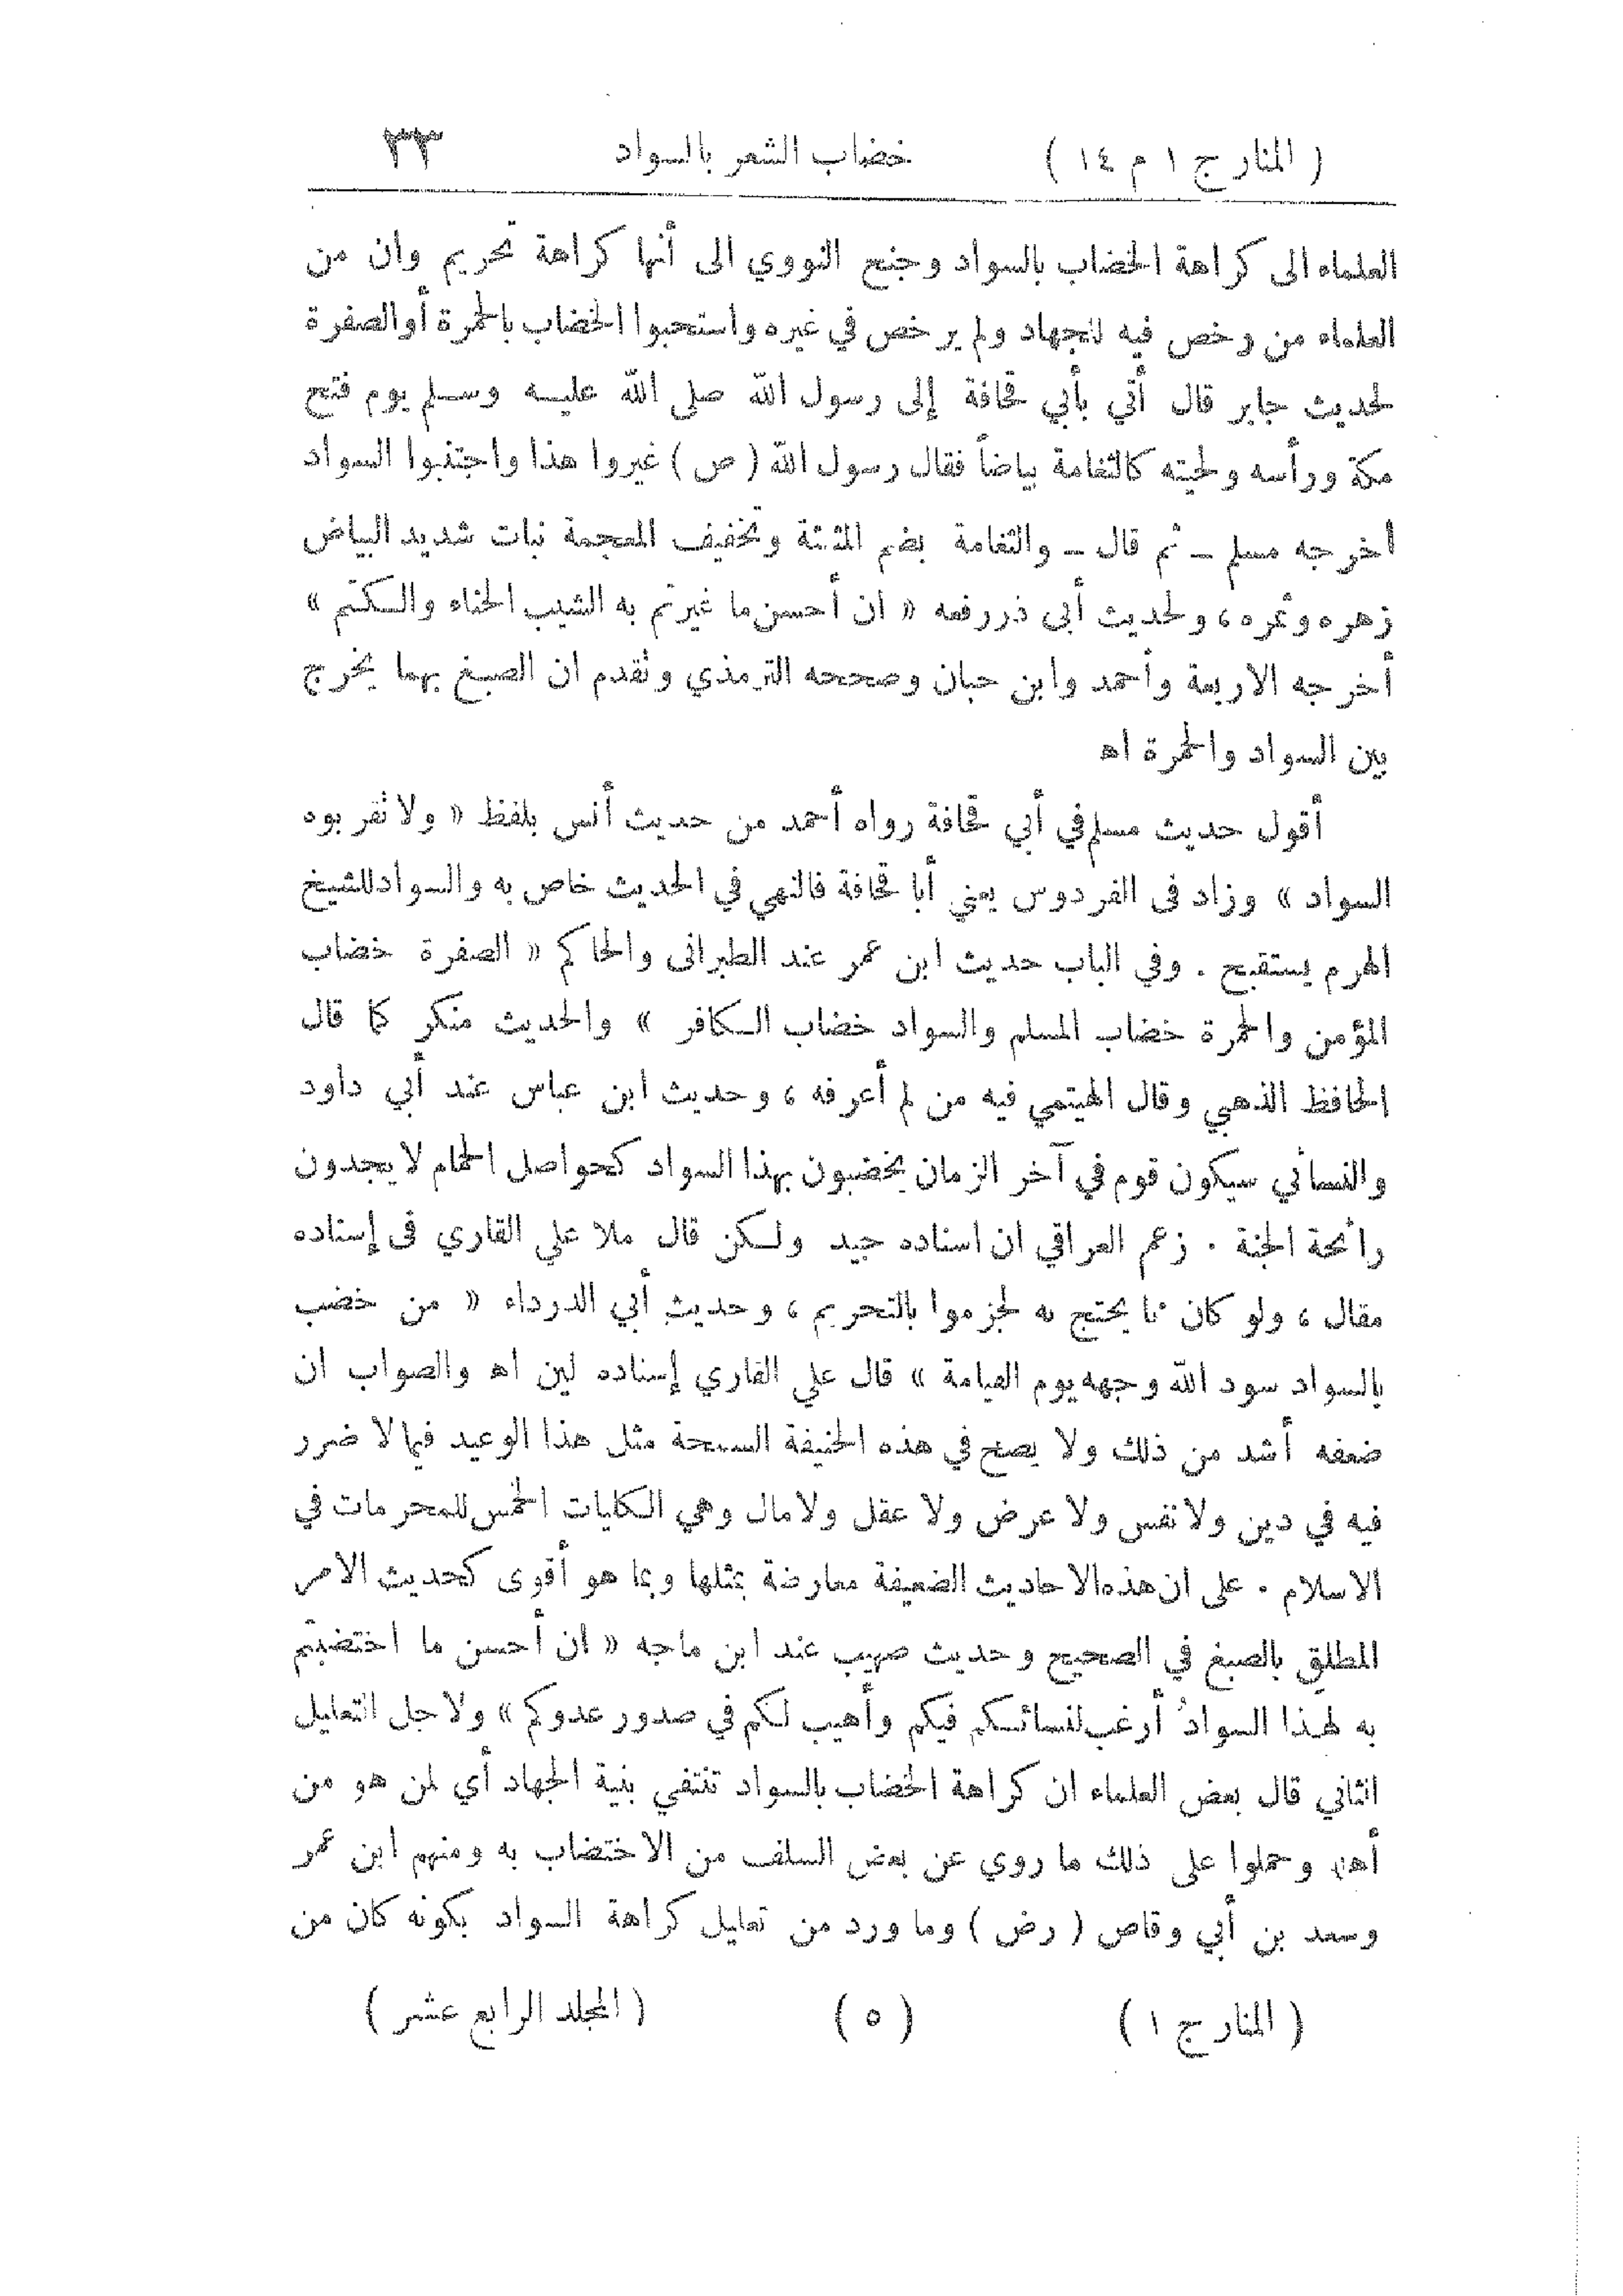 ( المنار ج ١ م ١٤ ) خضاب الشعر بالسواد ٣٣
العلماء الى كراهة الخضاب بالسواد وجنح النووي الى أنها كراهة تحريم وان من
العلماء من رخص فيه للجهاد ولم يرخص في غيره واستحبوا الخضاب بالحمرة أو الصفرة
لحديث جابر قال أتي بأبي قحافة إلى رسول الله صلى الله عليه وسلم يوم فتح
مكة ورأسه ولحيته كالثغامة بياضاً فقال رسول الله ( ص ) غيروا هذا واجتنبوا السواد
أخرجه مسلم – ثم قال – والثغامة بضم المثلثة وتخفيف المعجمة نبات شديد البياض
زهره وثمره ، ولحديث أبى ذر رفعه « ان أحسن ما غيرتم به الشيب الحناء والكتم »
أخرجه الاربعة وأحمد وابن حبان وصححه الترمذي وتقدم ان الصبغ بهما يخرج
بين السواد والحمرة اه
أقول حديث مسلم في أبي قحافة رواه أحمد من حديث أنس بلفظ « ولا تقربوه
السواد » وزاد فى الفردوس يعني أبا قحافة فالنهي في الحديث خاص به والسواد للشيخ
الهرم يستقبح . وفي الباب حديث ابن عمر عند الطبرانى والحاكم « الصفرة خضاب
المؤمن والحمرة خضاب المسلم والسواد خضاب الكافر » والحديث منكر كما قال
الحافظ الذهبي وقال الهيتمي فيه من لم أعرفه ، وحديث ابن عباس عند أبي داود
والنسائي سيكون قوم في آخر الزمان يخضبون بهذا السواد كحواصل الحمام لا يجدون
رائحة الجنة . زعم العراقي ان اسناده جيد ولكن قال ملا علي القاري فى إسناده
مقال ، ولو كان مما يحتج به لجزموا بالتحريم ، وحديث أبي الدرداء « من خضب
بالسواد سود الله وجهه يوم القيامة » قال علي القاري إسناده لين اه والصواب ان
ضعفه أشد من ذلك ولا يصح في هذه الحنيفة السمحة مثل هذا الوعيد فيما لا ضرر
فيه في دين ولا نفس ولا عرض ولا عقل ولا مال وهي الكليات الخمس للمحرمات في
الاسلام . على ان هذه الاحاديث الضعيفة معارضة بمثلها وبما هو أقوى كحديث الامر
المطلق بالصبغ في الصحيح وحديث صهيب عند ابن ماجه « ان أحسن ما اختضبتم
به لهذا السوادُ أرغب لنسائكم فيكم وأهيب لكم في صدور عدوكم » ولاجل التعليل
الثاني قال بعض العلماء ان كراهة الخضاب بالسواد تنتفي بنية الجهاد أي لمن هو من
أهله وحملوا على ذلك ما روي عن بعض السلف من الاختضاب به ومنهم ابن عمر
وسعد بن أبي وقاص ( رض ) وما ورد من تعليل كراهة السواد بكونه كان من
( المنار ج ١ ) ( ٥ ) ( المجلد الرابع عشر )